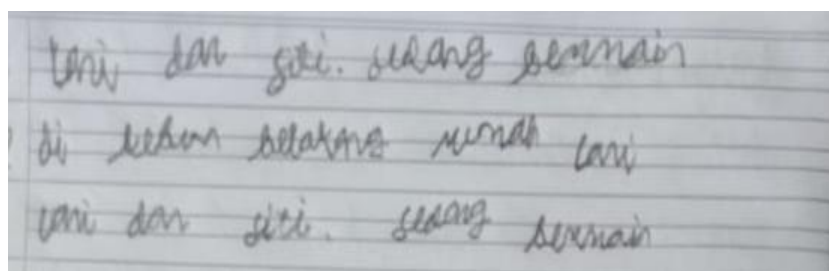 Lani dan siti. sedang bermain
di kebun belakang rumah Lani
Lani dan siti. sedang bermain